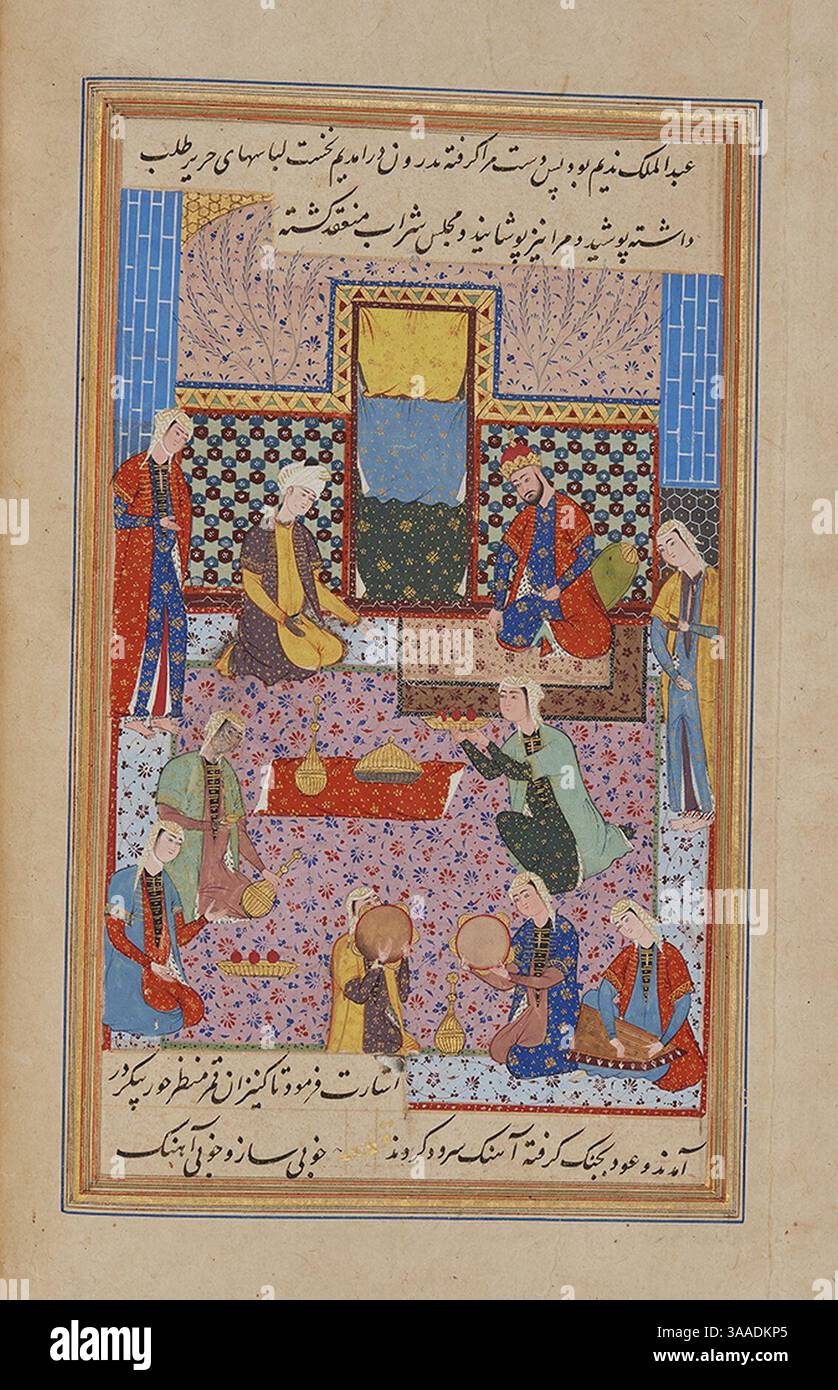 عبدالملک ندیم بود پس دست مرا گرفته بدرون درامدیم نخست لباسهای حریر طلب
داشته پوشید و مرا نیز پوشانید و مجلس شراب منعقد گشته
اشارت فرمود تا کنیزان قمر منظر حور پیکر در
آمدند و عود بچنک گرفته آهنک سرود کردند خوبی ساز و خوبی آهنک
alamy
Image ID: 3AADKP5
www.alamy.com